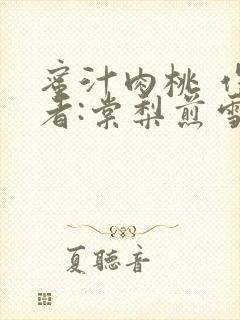 蜜汁肉桃
者:棠梨煎雪
夏聽音